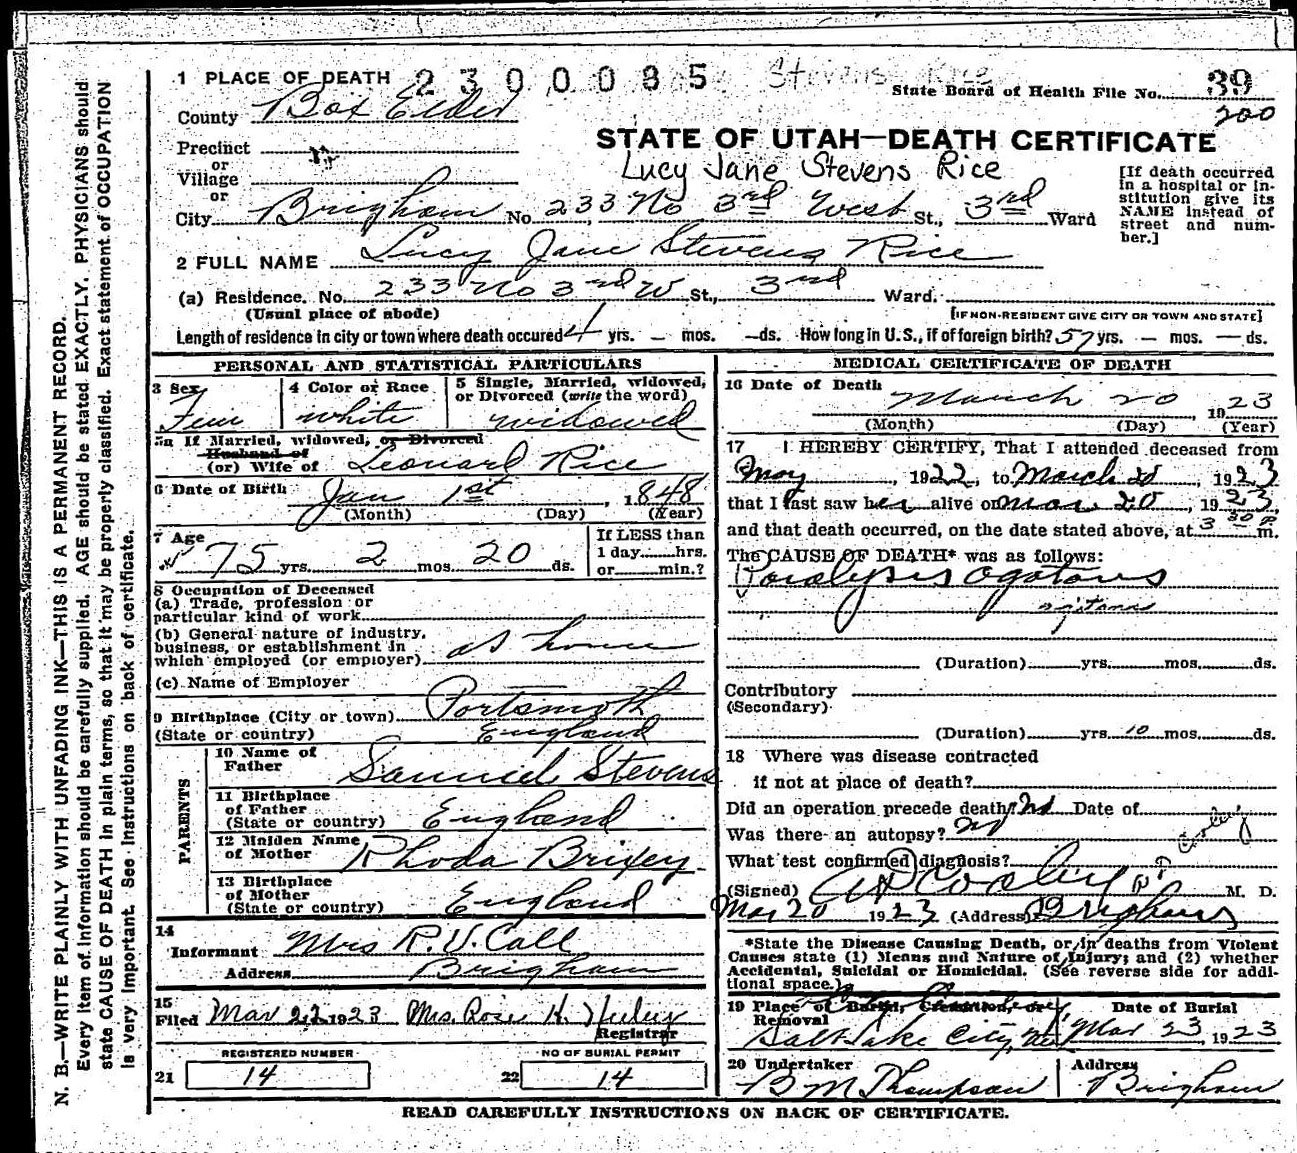 N. B.—WRITE PLAINLY WITH UNFADING INK—THIS IS A PERMANENT RECORD.
Every item of information should be carefully supplied. AGE should be stated EXACTLY. PHYSICIANS should
state CAUSE OF DEATH in plain terms, so that it may be properly classified. Exact statement of OCCUPATION
is very important. See instructions on back of certificate.
1 PLACE OF DEATH 2300085 Stevens Rice
State Board of Health File No. 39
200
County Box Elder
STATE OF UTAH—DEATH CERTIFICATE
Precinct
or
Village
or
Lucy Jane Stevens Rice
[If death occurred
in a hospital or in-
stitution give its
NAME instead of
street and num-
ber.]
City Brigham No. 233 No 3rd West St., 3rd Ward
2 FULL NAME Lucy Jane Stevens Rice
(a) Residence. No. 233 No 3rd W St., 3rd Ward.
(Usual place of abode) [IF NON-RESIDENT GIVE CITY OR TOWN AND STATE]
Length of residence in city or town where death occured 41 yrs. — mos. — ds. How long in U.S., if of foreign birth? 57 yrs. — mos. — ds.
PERSONAL AND STATISTICAL PARTICULARS
3 Sex Fem
4 Color or Race white
5 Single, Married, widowed,
or Divorced (write the word)
widowed
5a If Married, widowed, or Divorced
Husband of
(or) Wife of Leonard Rice
6 Date of Birth Jan 1st, 1848
(Month) (Day) (Year)
7 Age 75 yrs. 2 mos. 20 ds.
If LESS than
1 day hrs.
or min.?
8 Occupation of Deceased
(a) Trade, profession or
particular kind of work
(b) General nature of industry,
business, or establishment in
which employed (or employer) at home
(c) Name of Employer
9 Birthplace (City or town) Portsmoth
(State or country) England
PARENTS
10 Name of
Father Samuel Stevens
11 Birthplace
of Father
(State or country) England
12 Maiden Name
of Mother Rhoda Brixey
13 Birthplace
of Mother
(State or country) England
14
Informant Mrs R. V. Call
Address Brigham
15
Filed Mar 22 1923 Mrs. Rosie H.
Registrar
REGISTERED NUMBER
21 14
NO OF BURIAL PERMIT
22 14
MEDICAL CERTIFICATE OF DEATH
16 Date of Death
March 20, 1923
(Month) (Day) (Year)
17 I HEREBY CERTIFY, That I attended deceased from
May, 1922, to March 20, 1923
that I last saw her alive on Mar 20, 1923,
and that death occurred, on the date stated above, at 3 30 P m.
The CAUSE OF DEATH* was as follows:
Paralysis Agotans
agitans
(Duration) yrs. mos. ds.
Contributory
(Secondary)
(Duration) yrs. 10 mos. ds.
18 Where was disease contracted
if not at place of death?
Did an operation precede death? No Date of
Was there an autopsy? No
What test confirmed diagnosis?
Cooley
(Signed) A D Cooley M. D.
Mar 20 1923 (Address) Brigham
*State the Disease Causing Death, or in deaths from Violent
Causes state (1) Means and Nature of Injury; and (2) whether
Accidental, Suicidal or Homicidal. (See reverse side for addi-
tional space.)
19 Place of Burial, Cremation, or
Removal
Salt Lake City,
Date of Burial
Mar 23, 1923
20 Undertaker
B M Thompson
Address
Brigham
READ CAREFULLY INSTRUCTIONS ON BACK OF CERTIFICATE.